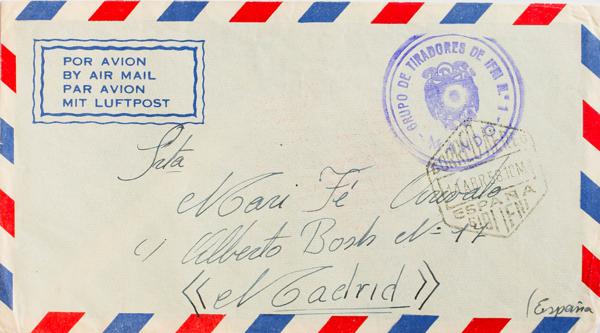 POR AVION
BY AIR MAIL
PAR AVION
MIT LUFTPOST
GRUPO DE TIRADORES DE IFNI N.º 1
- MANDO -
CORREO AEREO
ESPAÑA
SIDI IFNI
Srta
Mari Fé
c/ Alberto Bosh Nº 17
«Madrid»
(España